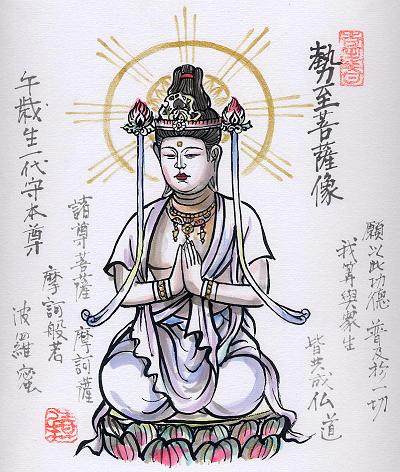 勢至菩薩像
願以此功徳 普及於一切
我等與衆生
皆共成仏道
諸尊菩薩 摩訶薩
摩訶般若
波羅蜜
午歳生一代守本尊